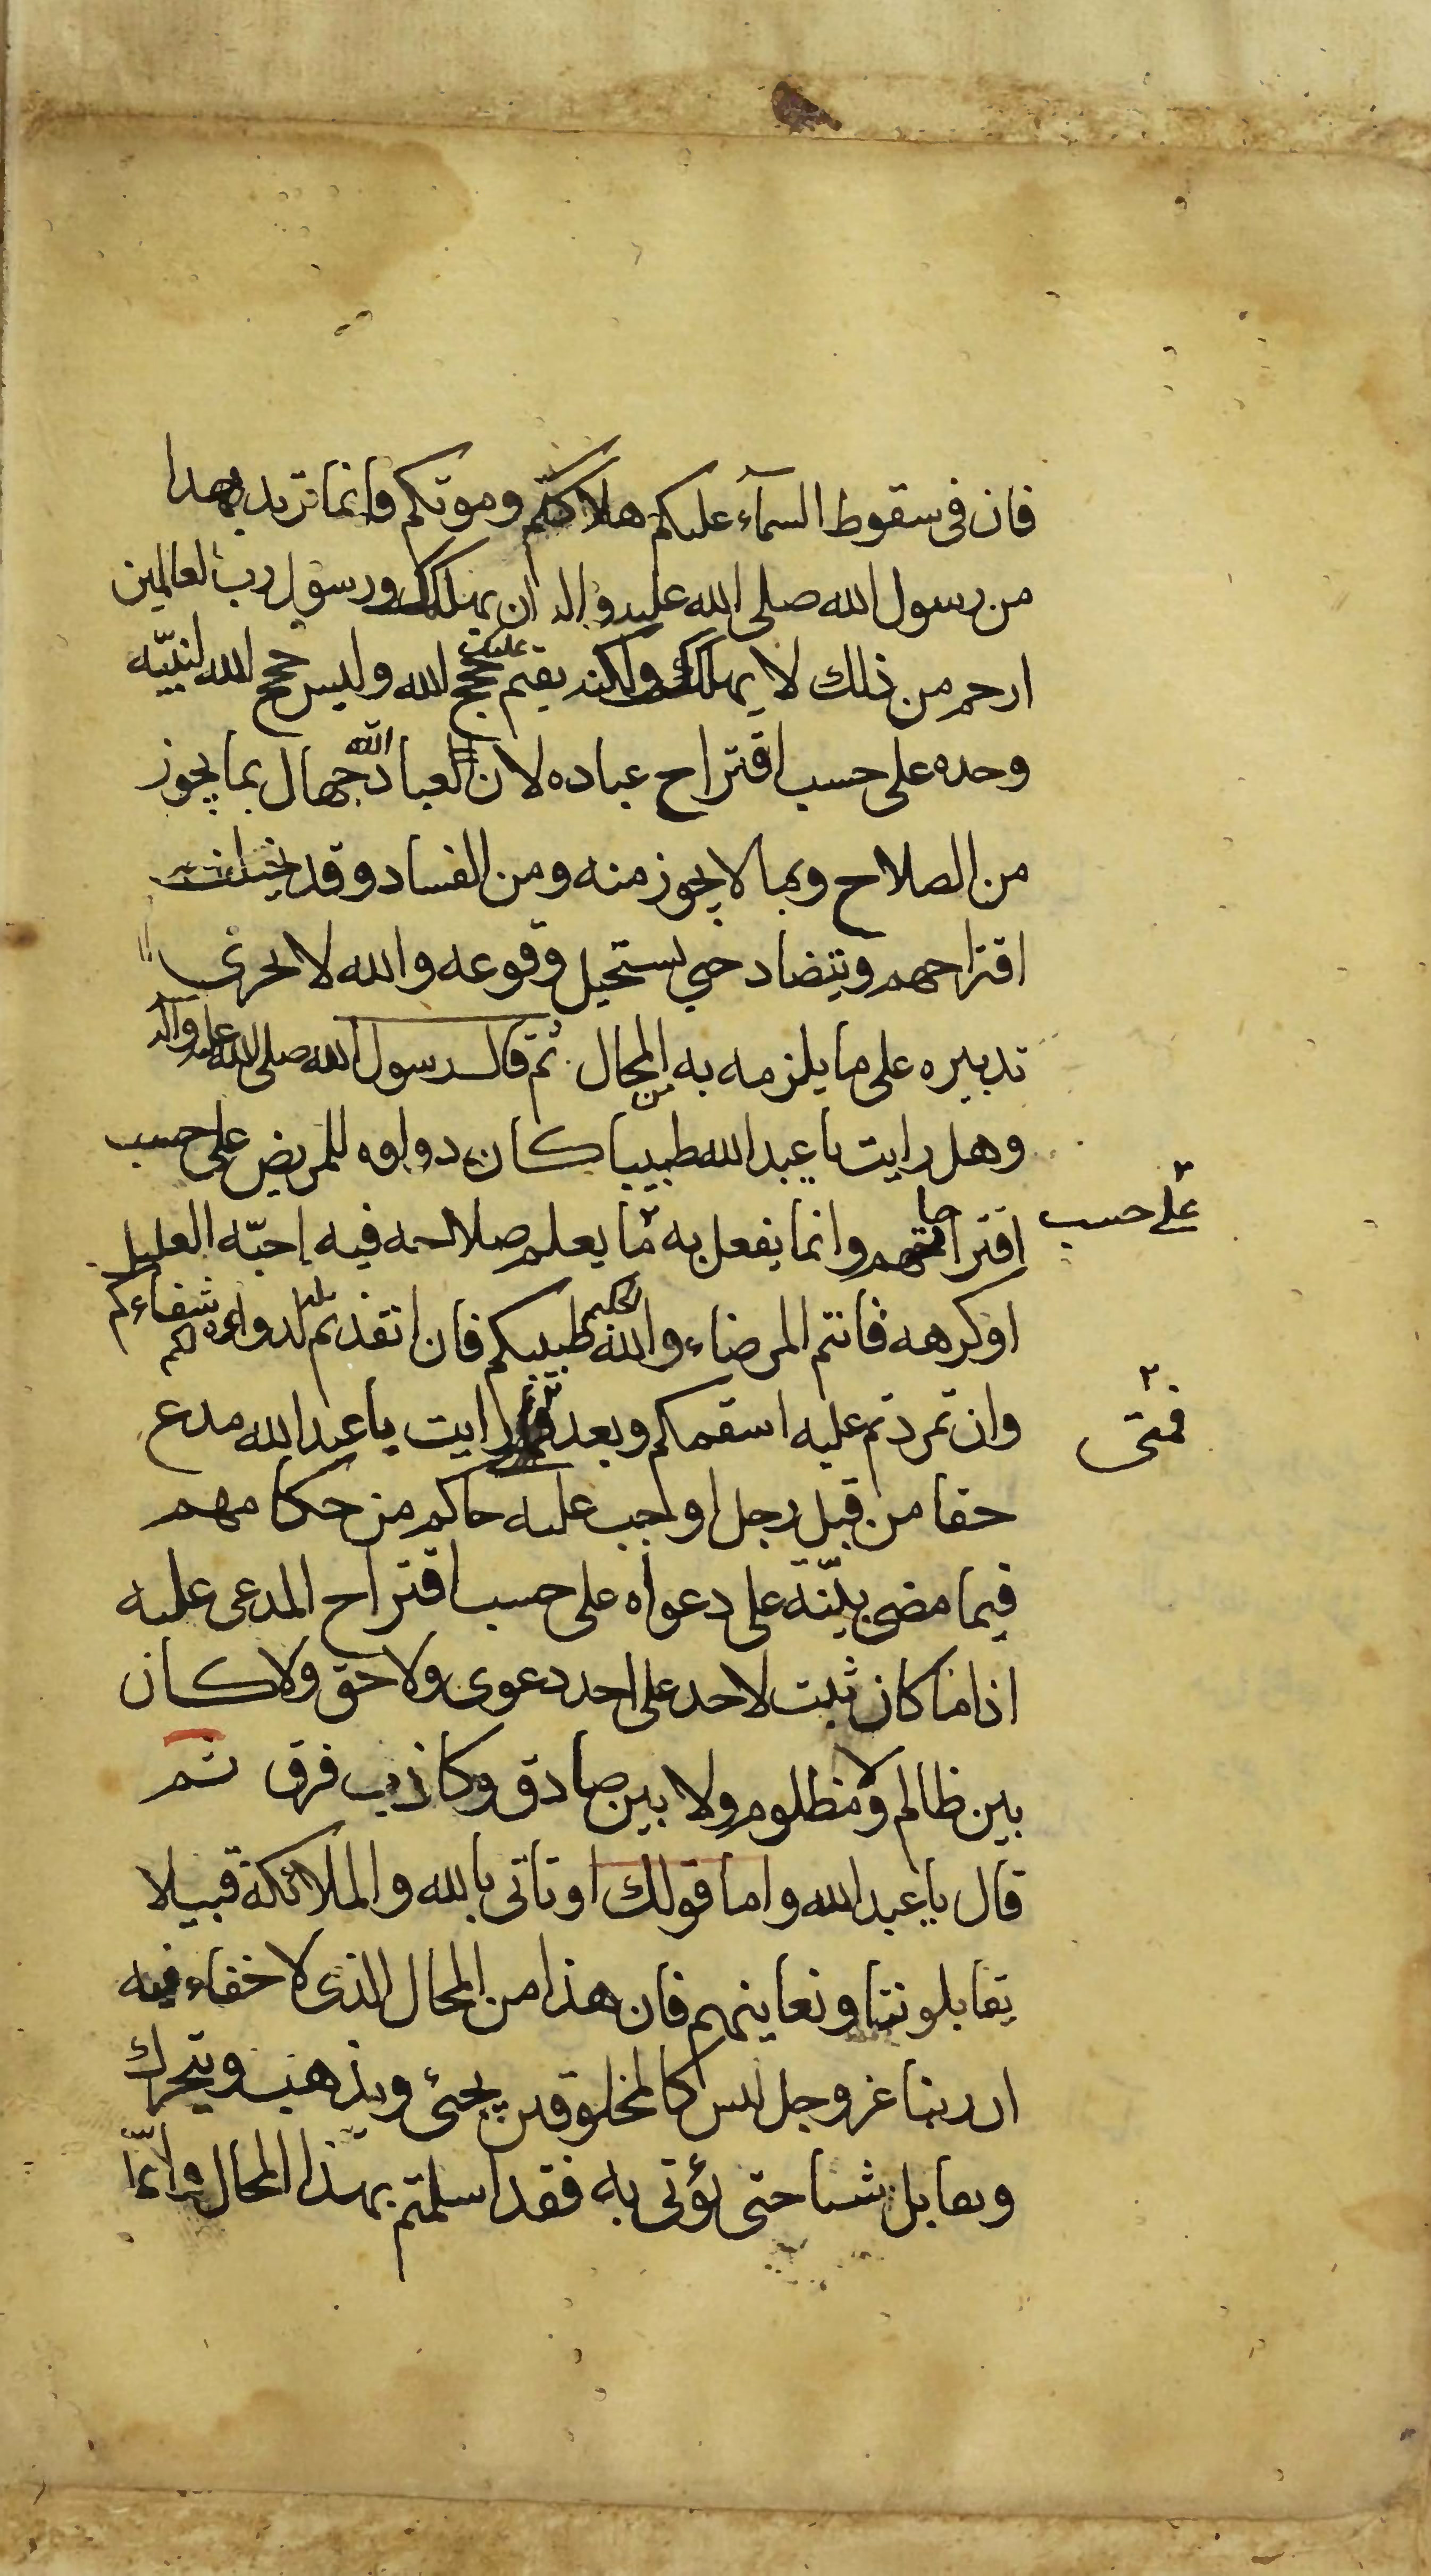 فان فى سقوط السمآء عليكم هلاككم وموتكم وانما تريد بهذا
من رسول الله صلى الله عليه واله ان يهلكك ورسول رب العالمين
ارحم من ذلك لا يهلكك ولكنه يقيم عليك حجج الله وليس حجج الله لنبيّه
وحده على حسب اقتراح عباده لان العباد الله جهال بما يجوز
من الصلاح وبما لا يجوز منه ومن الفساد وقد يختلف
اقتراحهم ويتضاد حتى يستحيل وقوعه والله لا يجرى
تدبيره على ما يلزمه به المحال ثم قال رسول الله صلى الله عليه واله
وهل رايت يا عبد الله طبيبا كان دواوه للمريض على حسب
على حسب
اقتراحاتهم وانما يفعل به ما يعلم صلاحه فيه احبّه العليل
او كرهه فانتم المرضاء والله الحكيم طبيبكم فان انقذتم لدوائه شفاءكم
وان تمردتم عليه اسقمكم وبعد رايت يا عبد الله مدع
فمتى
حقا من قبل رجل اوجب عليه حاكم من حكامهم
فيما مضى بيّنة على دعواه على حسب اقتراح المدعى عليه
اذا ما كان ثبت لاحد على احد دعوى ولا حق ولا كان
بين ظالم ولا مظلوم ولا بين صادق وكاذب فرق ثم
قال يا عبد الله واما قولك او تاتى بالله والملائكة قبيلا
يقابلوننا ونعاينهم فان هذا من المحال الذى لا خفاء فيه
ان ربنا عز وجل ليس كالمخلوقين يجئ ويذهب ويتحرك
ويقابل شيئا حتى يؤتى به فقد اسلمتم بهذا المحال وانمّا